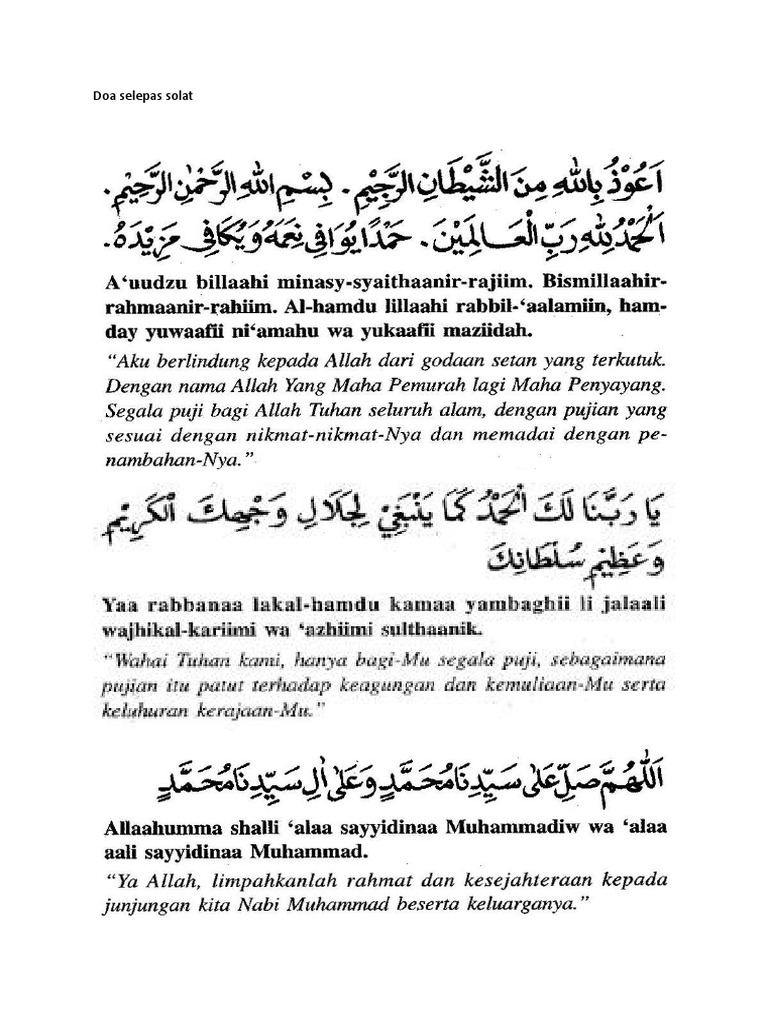 Doa selepas solat
اَعُوْذُ بِاللهِ مِنَ الشَّيْطَانِ الرَّجِيْمِ. بِسْمِ اللهِ الرَّحْمٰنِ الرَّحِيْمِ.
اَلْحَمْدُ لِلهِ رَبِّ الْعَالَمِيْنَ. حَمْدًا يُوَافِيْ نِعَمَهُ وَيُكَافِيْ مَزِيْدَهُ.
A‘uudzu billaahi minasy-syaithaanir-rajiim. Bismillaahir-
rahmaanir-rahiim. Al-hamdu lillaahi rabbil-‘aalamiin, ham-
day yuwaafii ni‘amahu wa yukaafii maziidah.
“Aku berlindung kepada Allah dari godaan setan yang terkutuk.
Dengan nama Allah Yang Maha Pemurah lagi Maha Penyayang.
Segala puji bagi Allah Tuhan seluruh alam, dengan pujian yang
sesuai dengan nikmat-nikmat-Nya dan memadai dengan pe-
nambahan-Nya.”
يَا رَبَّنَا لَكَ الْحَمْدُ كَمَا يَنْبَغِيْ لِجَلَالِ وَجْهِكَ الْكَرِيْمِ
وَعَظِيْمِ سُلْطَانِكَ
Yaa rabbanaa lakal-hamdu kamaa yambaghii li jalaali
wajhikal-kariimi wa ‘azhiimi sulthaanik.
“Wahai Tuhan kami, hanya bagi-Mu segala puji, sebagaimana
pujian itu patut terhadap keagungan dan kemuliaan-Mu serta
keluhuran kerajaan-Mu.”
اَللّٰهُمَّ صَلِّ عَلٰى سَيِّدِنَا مُحَمَّدٍ وَعَلٰى اٰلِ سَيِّدِنَا مُحَمَّدٍ
Allaahumma shalli ‘alaa sayyidinaa Muhammadiw wa ‘alaa
aali sayyidinaa Muhammad.
“Ya Allah, limpahkanlah rahmat dan kesejahteraan kepada
junjungan kita Nabi Muhammad beserta keluarganya.”